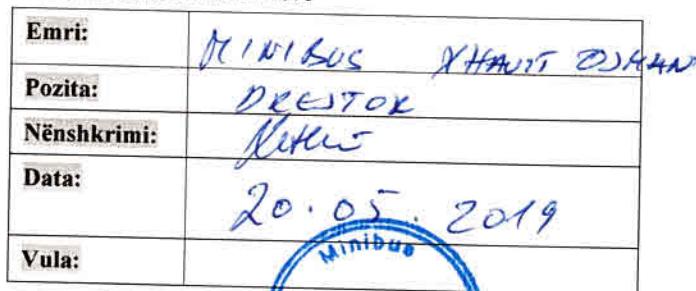 Emri: MINIBUS XHAVIT OSMAN
Pozita: DREJTOR
Nënshkrimi:
Data: 20.05.2019
Vula: Minibus